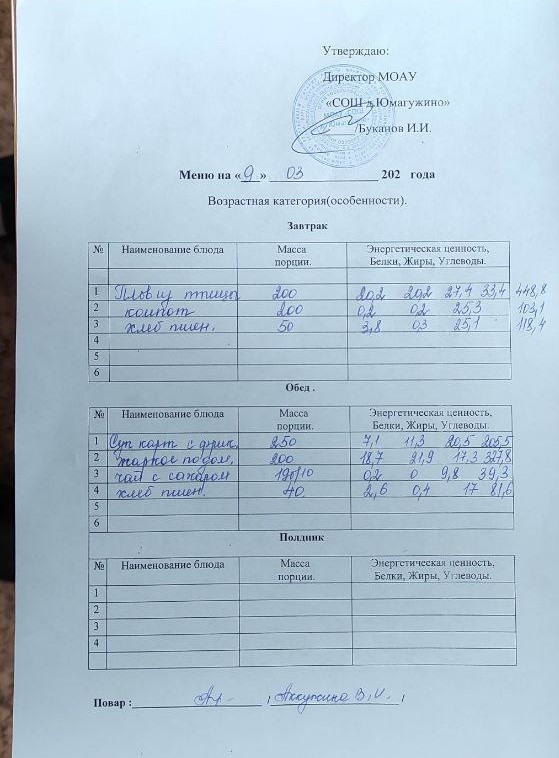 Утверждаю:
Директор МОАУ
«СОШ д.Юмагужино»
/Буканов И.И.
Меню на « 9 » 03 202 года
Возрастная категория(особенности).
Завтрак
№ Наименование блюда Масса порции. Энергетическая ценность, Белки, Жиры, Углеводы.
1 Плов из птицы 200 20,2 20,2 27,4 33,4 448,8
2 компот 200 0,2 0,2 25,3 103,1
3 хлеб пшен. 50 3,8 0,3 25,1 118,4
4
5
6
Обед .
№ Наименование блюда Масса порции. Энергетическая ценность, Белки, Жиры, Углеводы.
1 Суп карт с фрик. 250 7,1 11,3 20,5 205,5
2 жаркое по дом. 200 18,7 21,9 17,3 327,8
3 чай с сахаром 190/10 0,2 0 9,8 39,3
4 хлеб пшен. 40 2,6 0,4 17 81,6
5
6
Полдник
№ Наименование блюда Масса порции. Энергетическая ценность, Белки, Жиры, Углеводы.
1
2
3
4
Повар : / Аккужина В.И. /